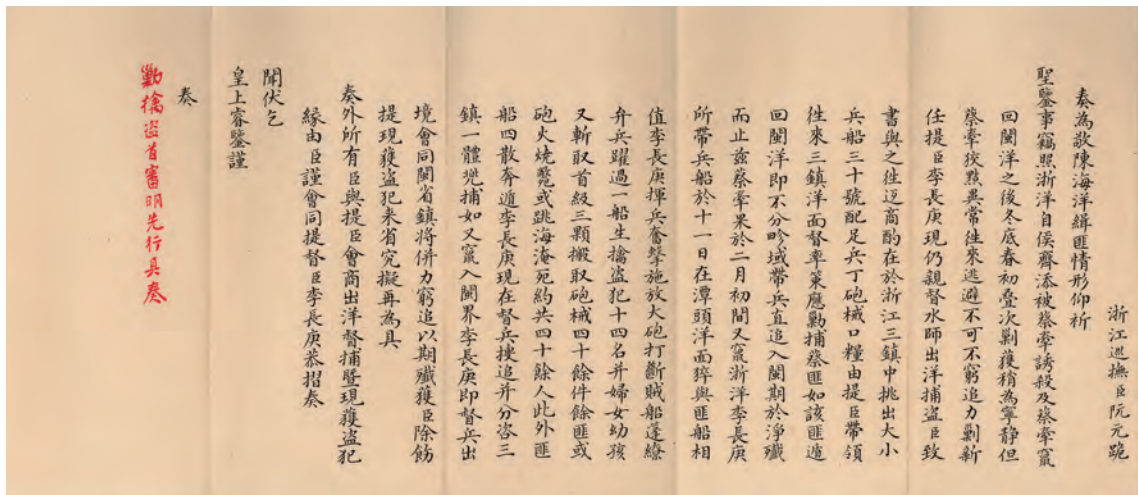 浙江巡撫臣阮元跪
奏為敬陳海洋緝匪情形仰祈
聖鑒事竊照浙洋自侯齊添被蔡牽誘殺及蔡牽竄
回閩洋之後冬底春初疊次剿獲稍為寧静但
蔡牽狡黠異常徃來逃避不可不窮追力剿新
任提臣李長庚現仍親督水師出洋捕盜臣致
書與之徃返商酌在於浙江三鎮中挑出大小
兵船三十號配足兵丁砲械口糧由提臣帶領
徃來三鎮洋面督率策應勦捕蔡匪如該匪遁
回閩洋即不分畛域帶兵直追入閩期於淨殲
而止茲蔡牽果於二月初間又竄浙洋李長庚
所帶兵船於十一日在潭頭洋面猝與匪船相
值李長庚揮兵奮擊施放大砲打斷賊船蓬繚
弁兵躍過一船生擒盜犯十四名并婦女幼孩
又斬取首級三顆搬取砲械四十餘件餘匪或
砲火燒斃或跳海淹死約共四十餘人此外匪
船四散奔遁李長庚現在督兵摟追并分咨三
鎮一體兜捕如又竄入閩界李長庚即督兵出
境會同閩省鎮將併力窮追以期殲獲臣除飭
提現獲盜犯来省究擬再為具
奏外所有臣與提臣會商出洋督捕暨現獲盜犯
緣由臣謹會同提督臣李長庚恭摺奏
聞伏乞
皇上睿鑒謹
奏
勦擒盜首審明先行具奏